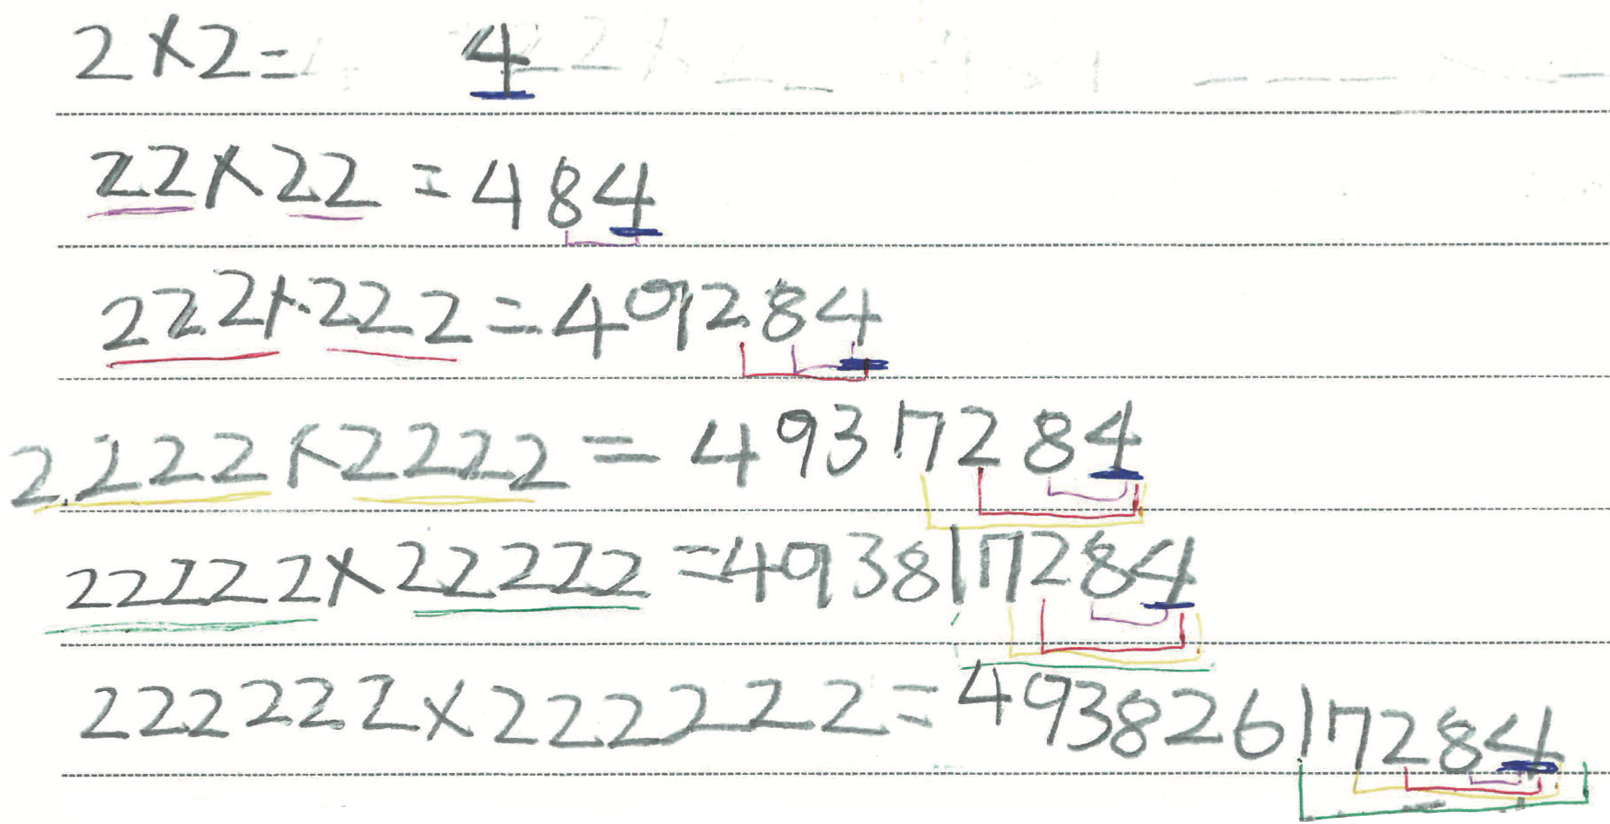 2×2= 4
22×22=484
222×222=49284
2222×2222=4937284
22222×22222=493817284
222222×222222=49382617284